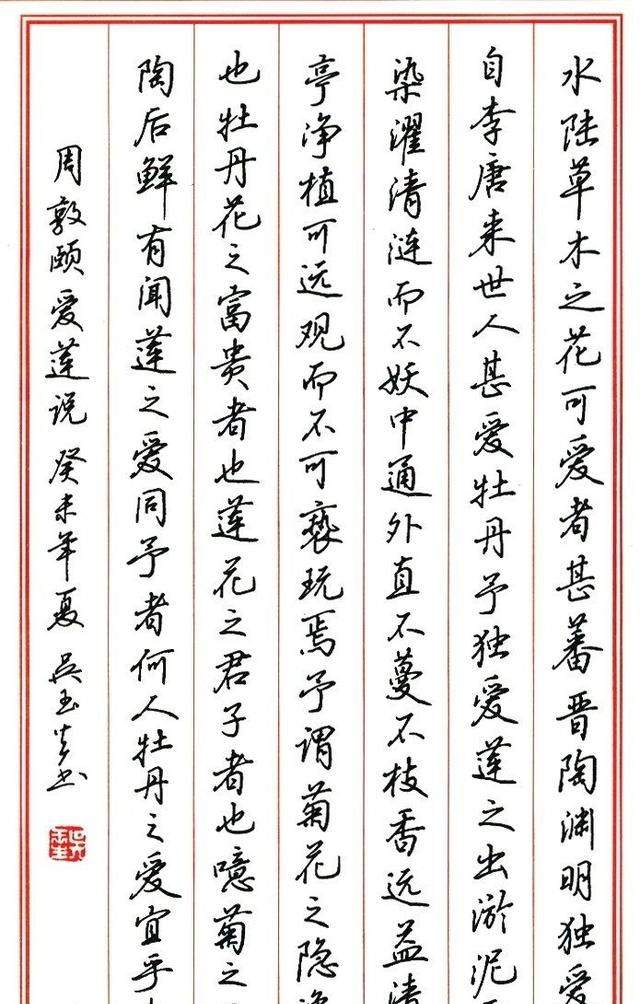 水陆草木之花可爱者甚蕃晋陶渊明独爱
自李唐来世人甚爱牡丹予独爱莲之出淤泥
染濯清涟而不妖中通外直不蔓不枝香远益清
亭净植可远观而不可亵玩焉予谓菊花之隐
也牡丹花之富贵者也莲花之君子者也噫菊之
陶后鲜有闻莲之爱同予者何人牡丹之爱宜乎
周敦颐爱莲说 癸未年夏 吴玉生书
吴玉生